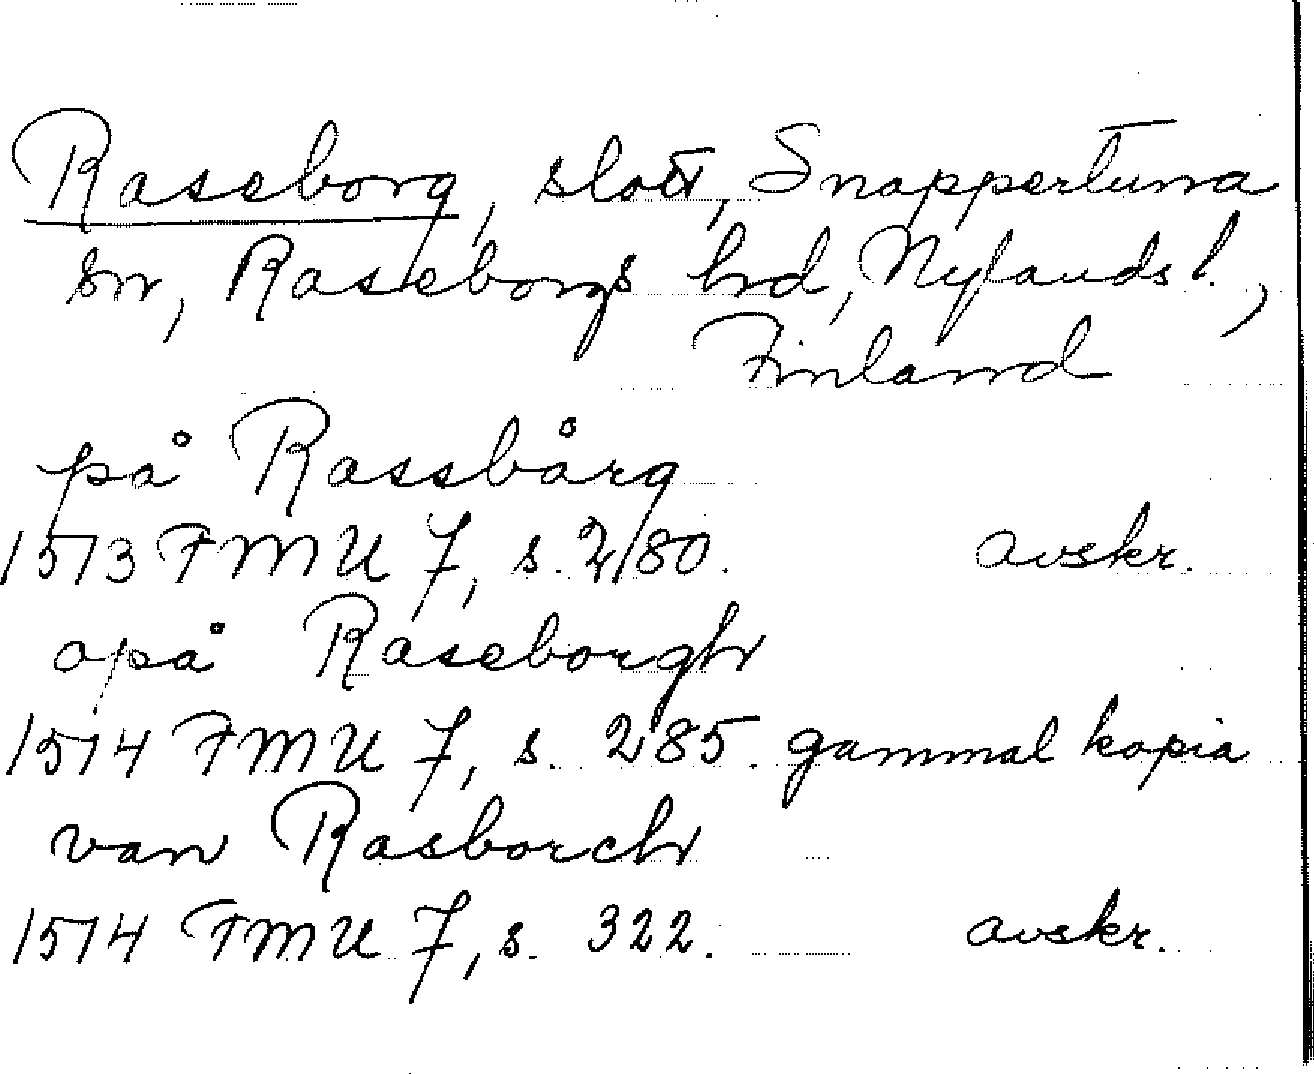 Raseborg, slott, Snappertuna
sn, Raseborgs hd, Nylands l.,
Finland
på Rassbårg
1513 FMU 7, s. 280. avskr.
opå Raseborgh
1514 FMU 7, s. 285. gammal kopia
van Rasborch
1514 FMU 7, s. 322. avskr.